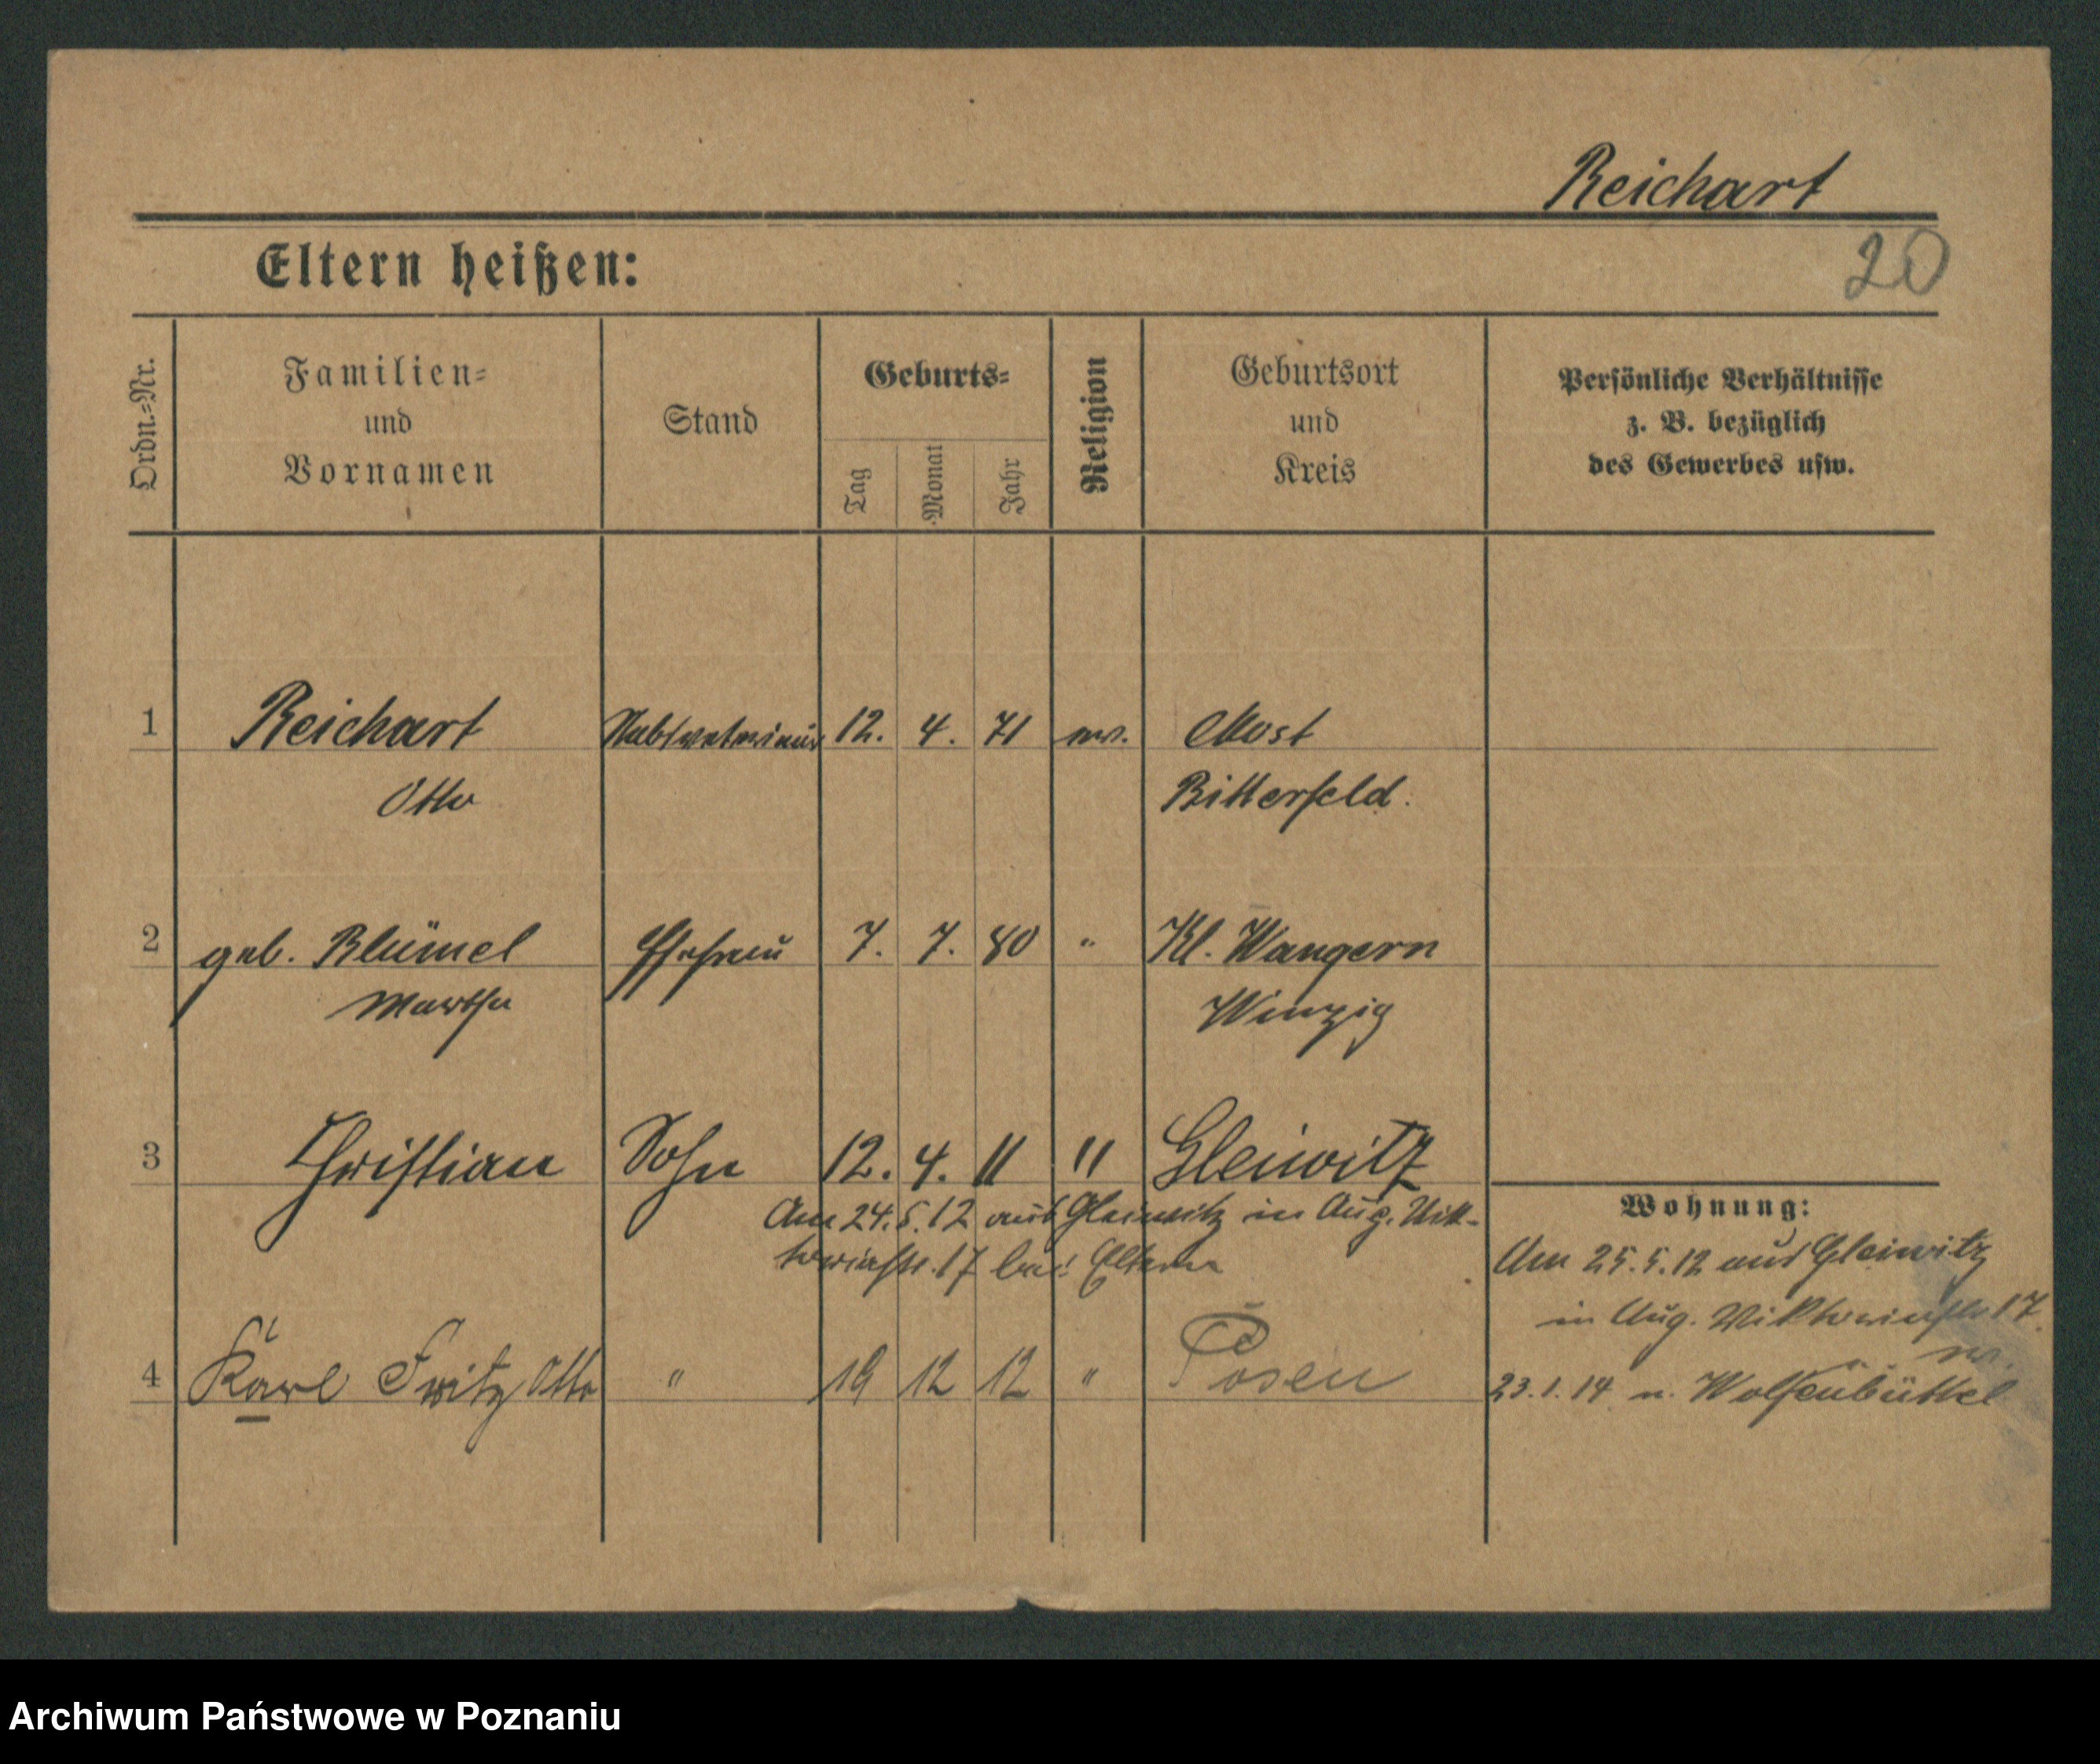 Reichart
20
Eltern heißen:
Ordn.=Nr.
Familien=
und
Vornamen
Stand
Geburts=
Tag
Monat
Jahr
Religion
Geburtsort
und
Kreis
Persönliche Verhältnisse
z. B. bezüglich
des Gewerbes usw.
1 Reichart Stabsveterinär 12. 4. 71 ev. Most
Otto Bitterfeld.
2 geb. Blümel Ehefrau 7. 7. 80 " Kl. Wangern
Martha Winzig
3 Christian Sohn 12. 4. 11 " Gleiwitz
Am 24.5.12 aus Gleiwitz in Aug. Vik-
toriastr. 17 bei Eltern
Wohnung:
Am 25.5.12 aus Gleiwitz
in Aug. Viktoriastr 17.
4 Karl Fritz Otto " 19 12 12 " Posen
23.1.14 n. Wolfenbüttel
Archiwum Państwowe w Poznaniu